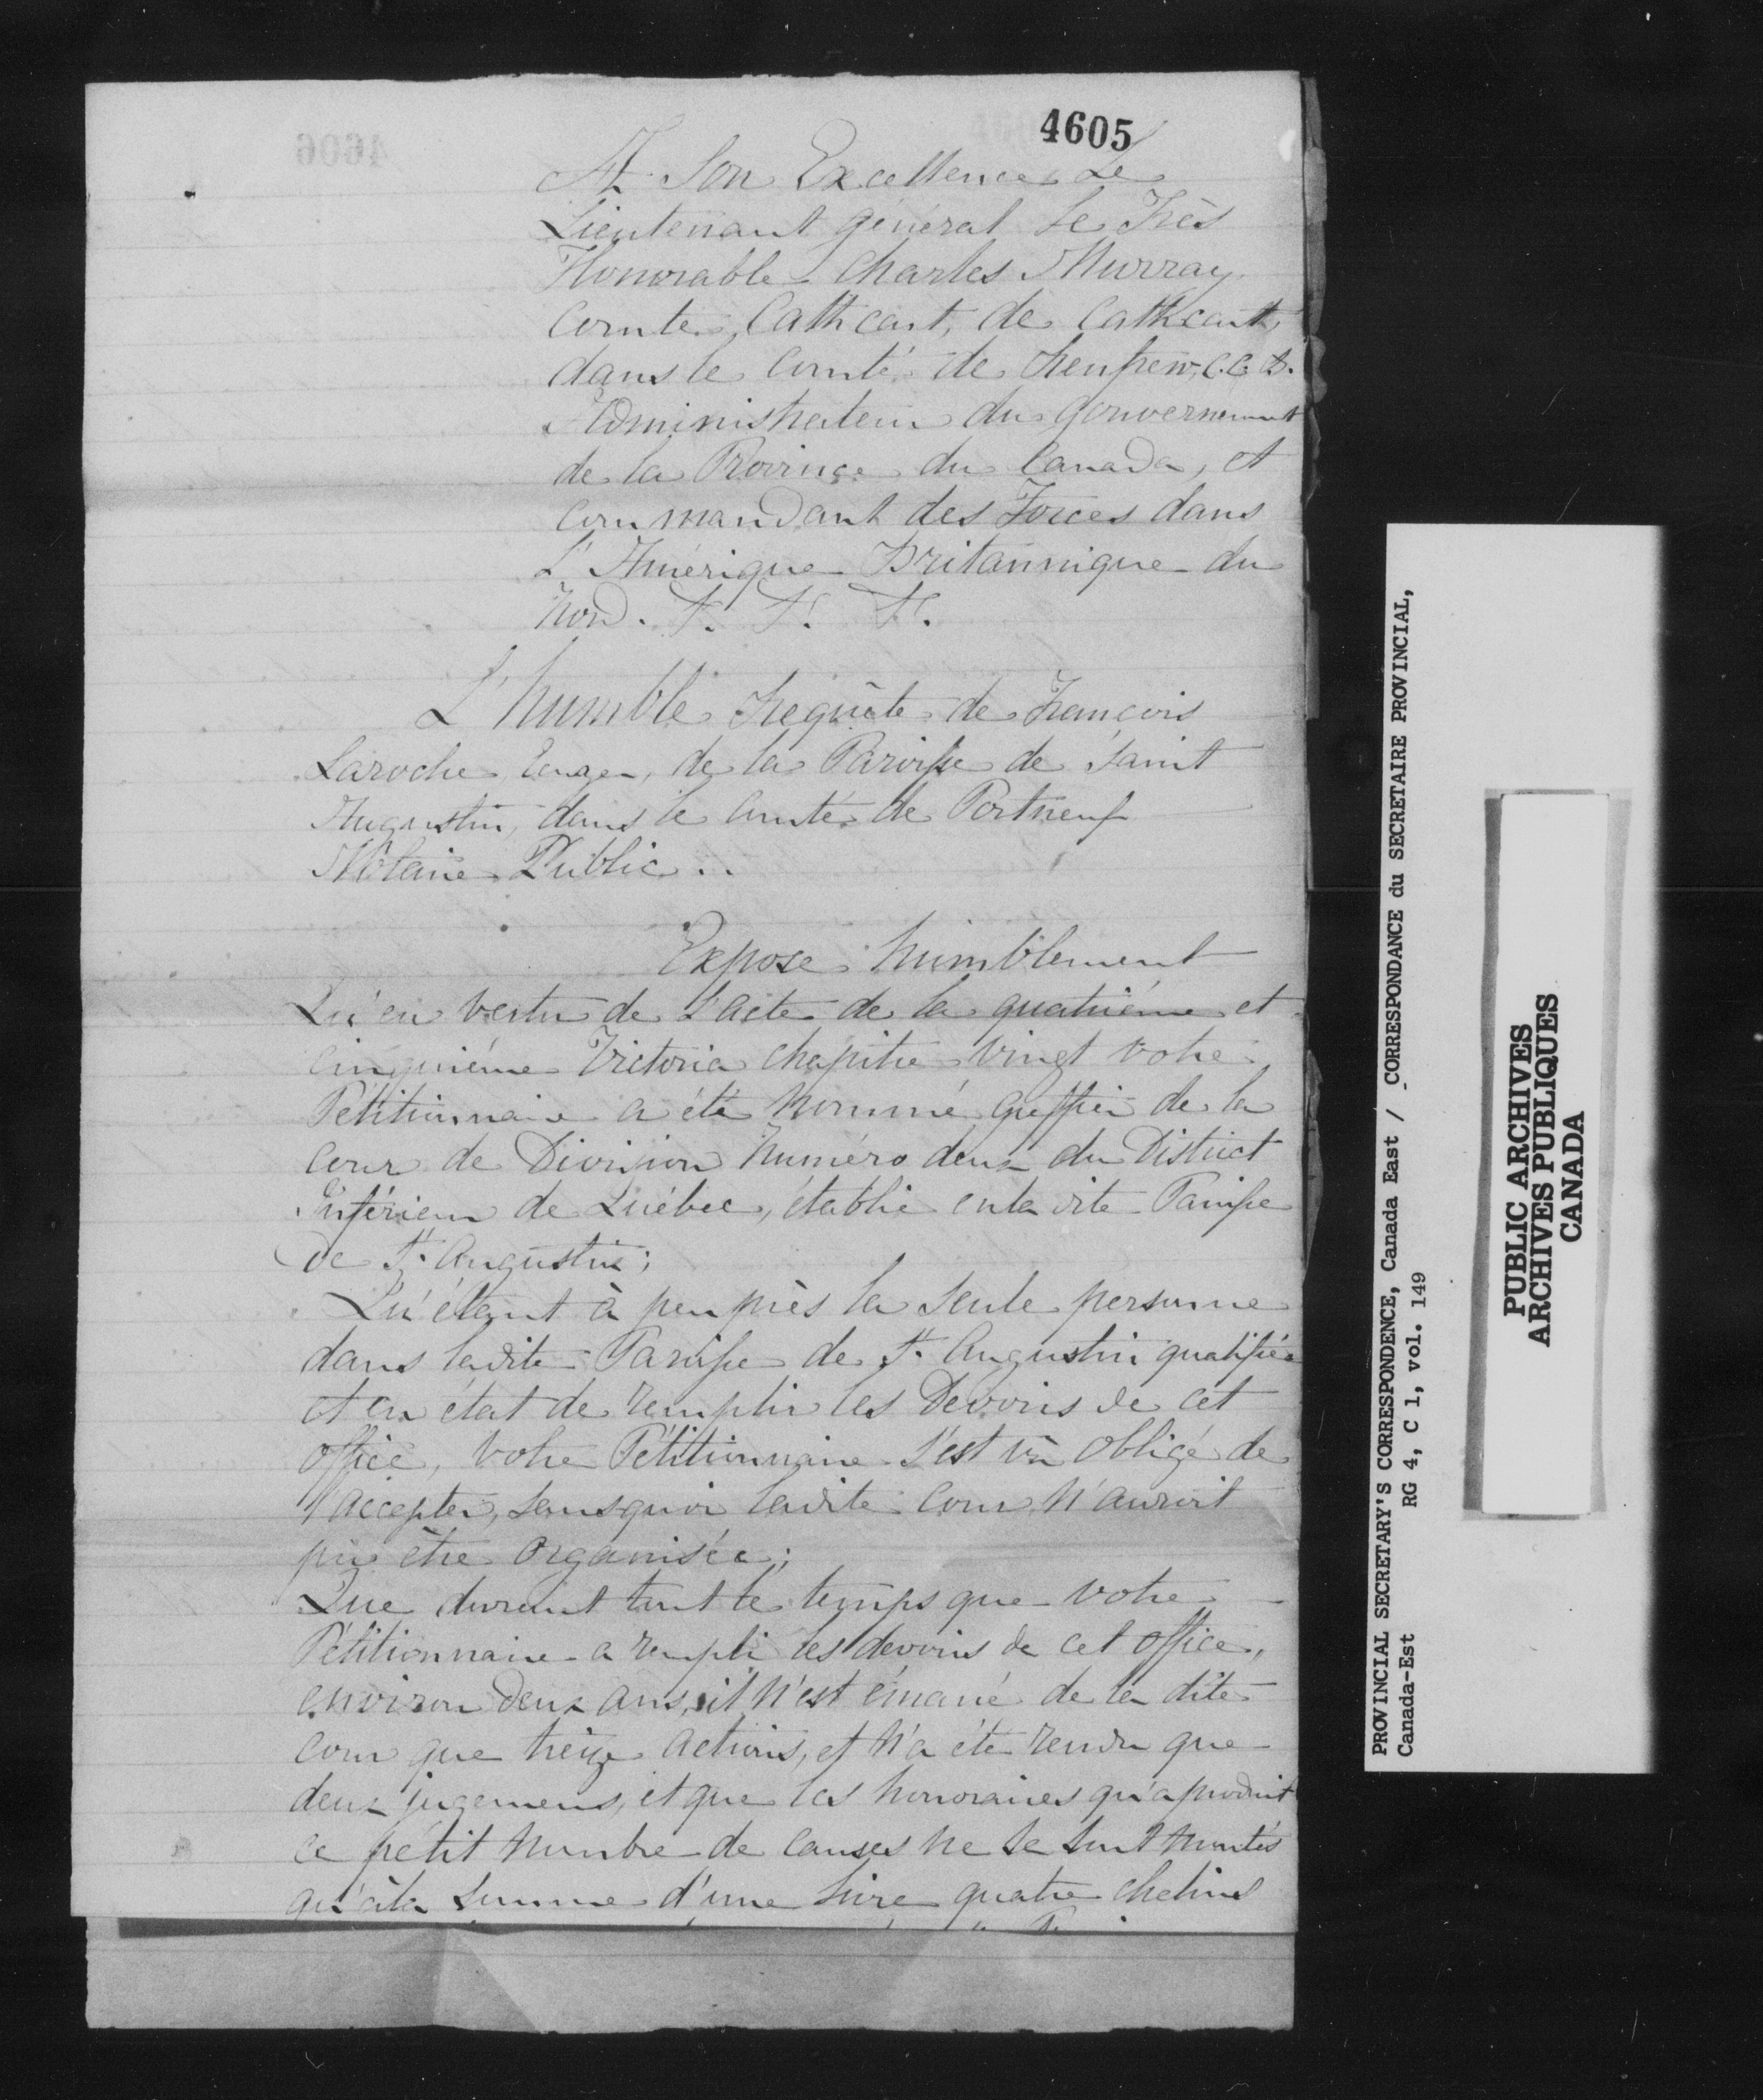 4605
A Son Excellence Le
Lieutenant général Le Très
Honorable Charles Murray
Comte Cathcart, de Cathcart,
dans le Comté de Renfrew, C.C.B.
Administrateur du gouvernement
de la Province du Canada, et
Commandant des Forces dans
L'Amérique Britannique du
Nord. &. &. &.
L'humble Requête de François
Laroche, de la Paroisse de Saint
Augustin, dans le Comté de Portneuf
Notaire Public..
Expose humblement
Qu'en vertu de l'acte de la quatriéme et
cinquiéme Victoria chapitre vingt votre
Pétitionnaire a été nommé greffier de la
Cour de Division Numéro deux du District
Inférieur de Québec, établie en la dite Paroisse
de St. Augustin;
Qu'étant à peu près la seule personne
dans ladite Paroisse de St. Augustin qualifiée
et en état de remplir les Devoirs de cet
office, Votre Pétitionnaire s'est vû obligé de
l'accepter, sans quoi ladite Cour n'auroit
pû être organisée;
Que durant tout le temps que votre
Pétitionnaire a rempli les devoirs de cet office,
environ deux ans, il n'est émané de la dite
Cour que treize actions, et n'a été rendu que
deux jugemens, et que les honoraires qu'a produit
ce pétit nombre de causes ne se sont montés
qu'à la somme d'une livre quatre chelins
4606
PROVINCIAL SECRETARY'S CORRESPONDENCE, Canada East / CORRESPONDANCE du SECRETAIRE PROVINCIAL,
Canada-Est RG 4, C 1, vol. 149
PUBLIC ARCHIVES
ARCHIVES PUBLIQUES
CANADA